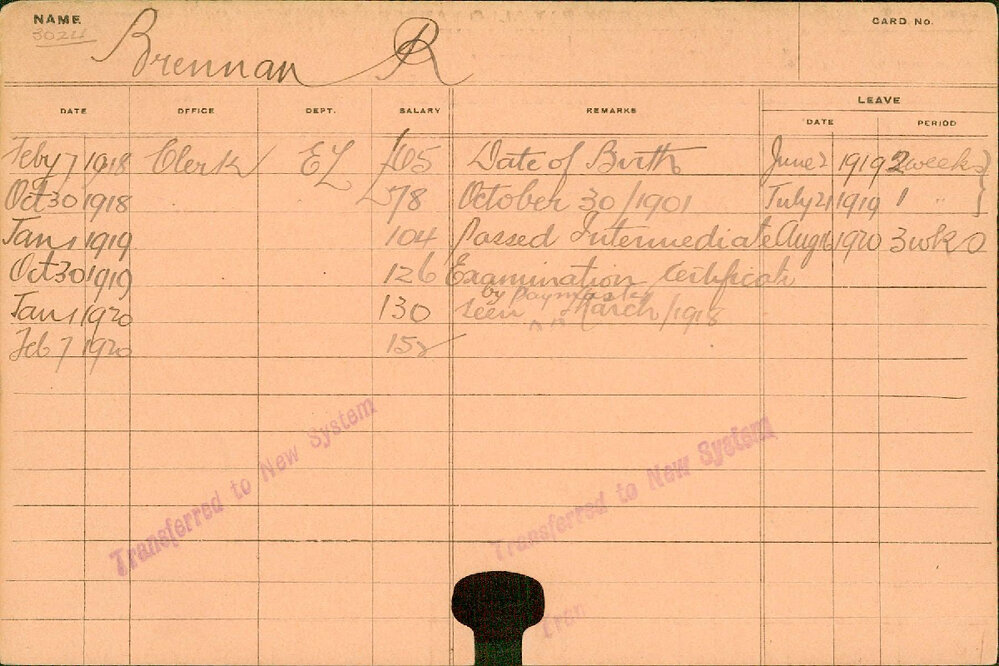 NAME
3024
Brennan R
CARD No.
DATE OFFICE DEPT. SALARY REMARKS LEAVE
DATE PERIOD
Feby 7 1918 Clerk EL £65 Date of Birth June 2 1919 2 weeks
Oct 30 1918 £78 October 30/1901 July 21 1919 1 "
Jan 1 1919 104 Passed Intermediate Aug 1920 3 wks
Oct 30 1919 126 Examination Certificate
by Paymaster
Jan 1 1920 130 seen March/1918
Feb 7 1920
Transferred to New System
Transferred to New System
Tran